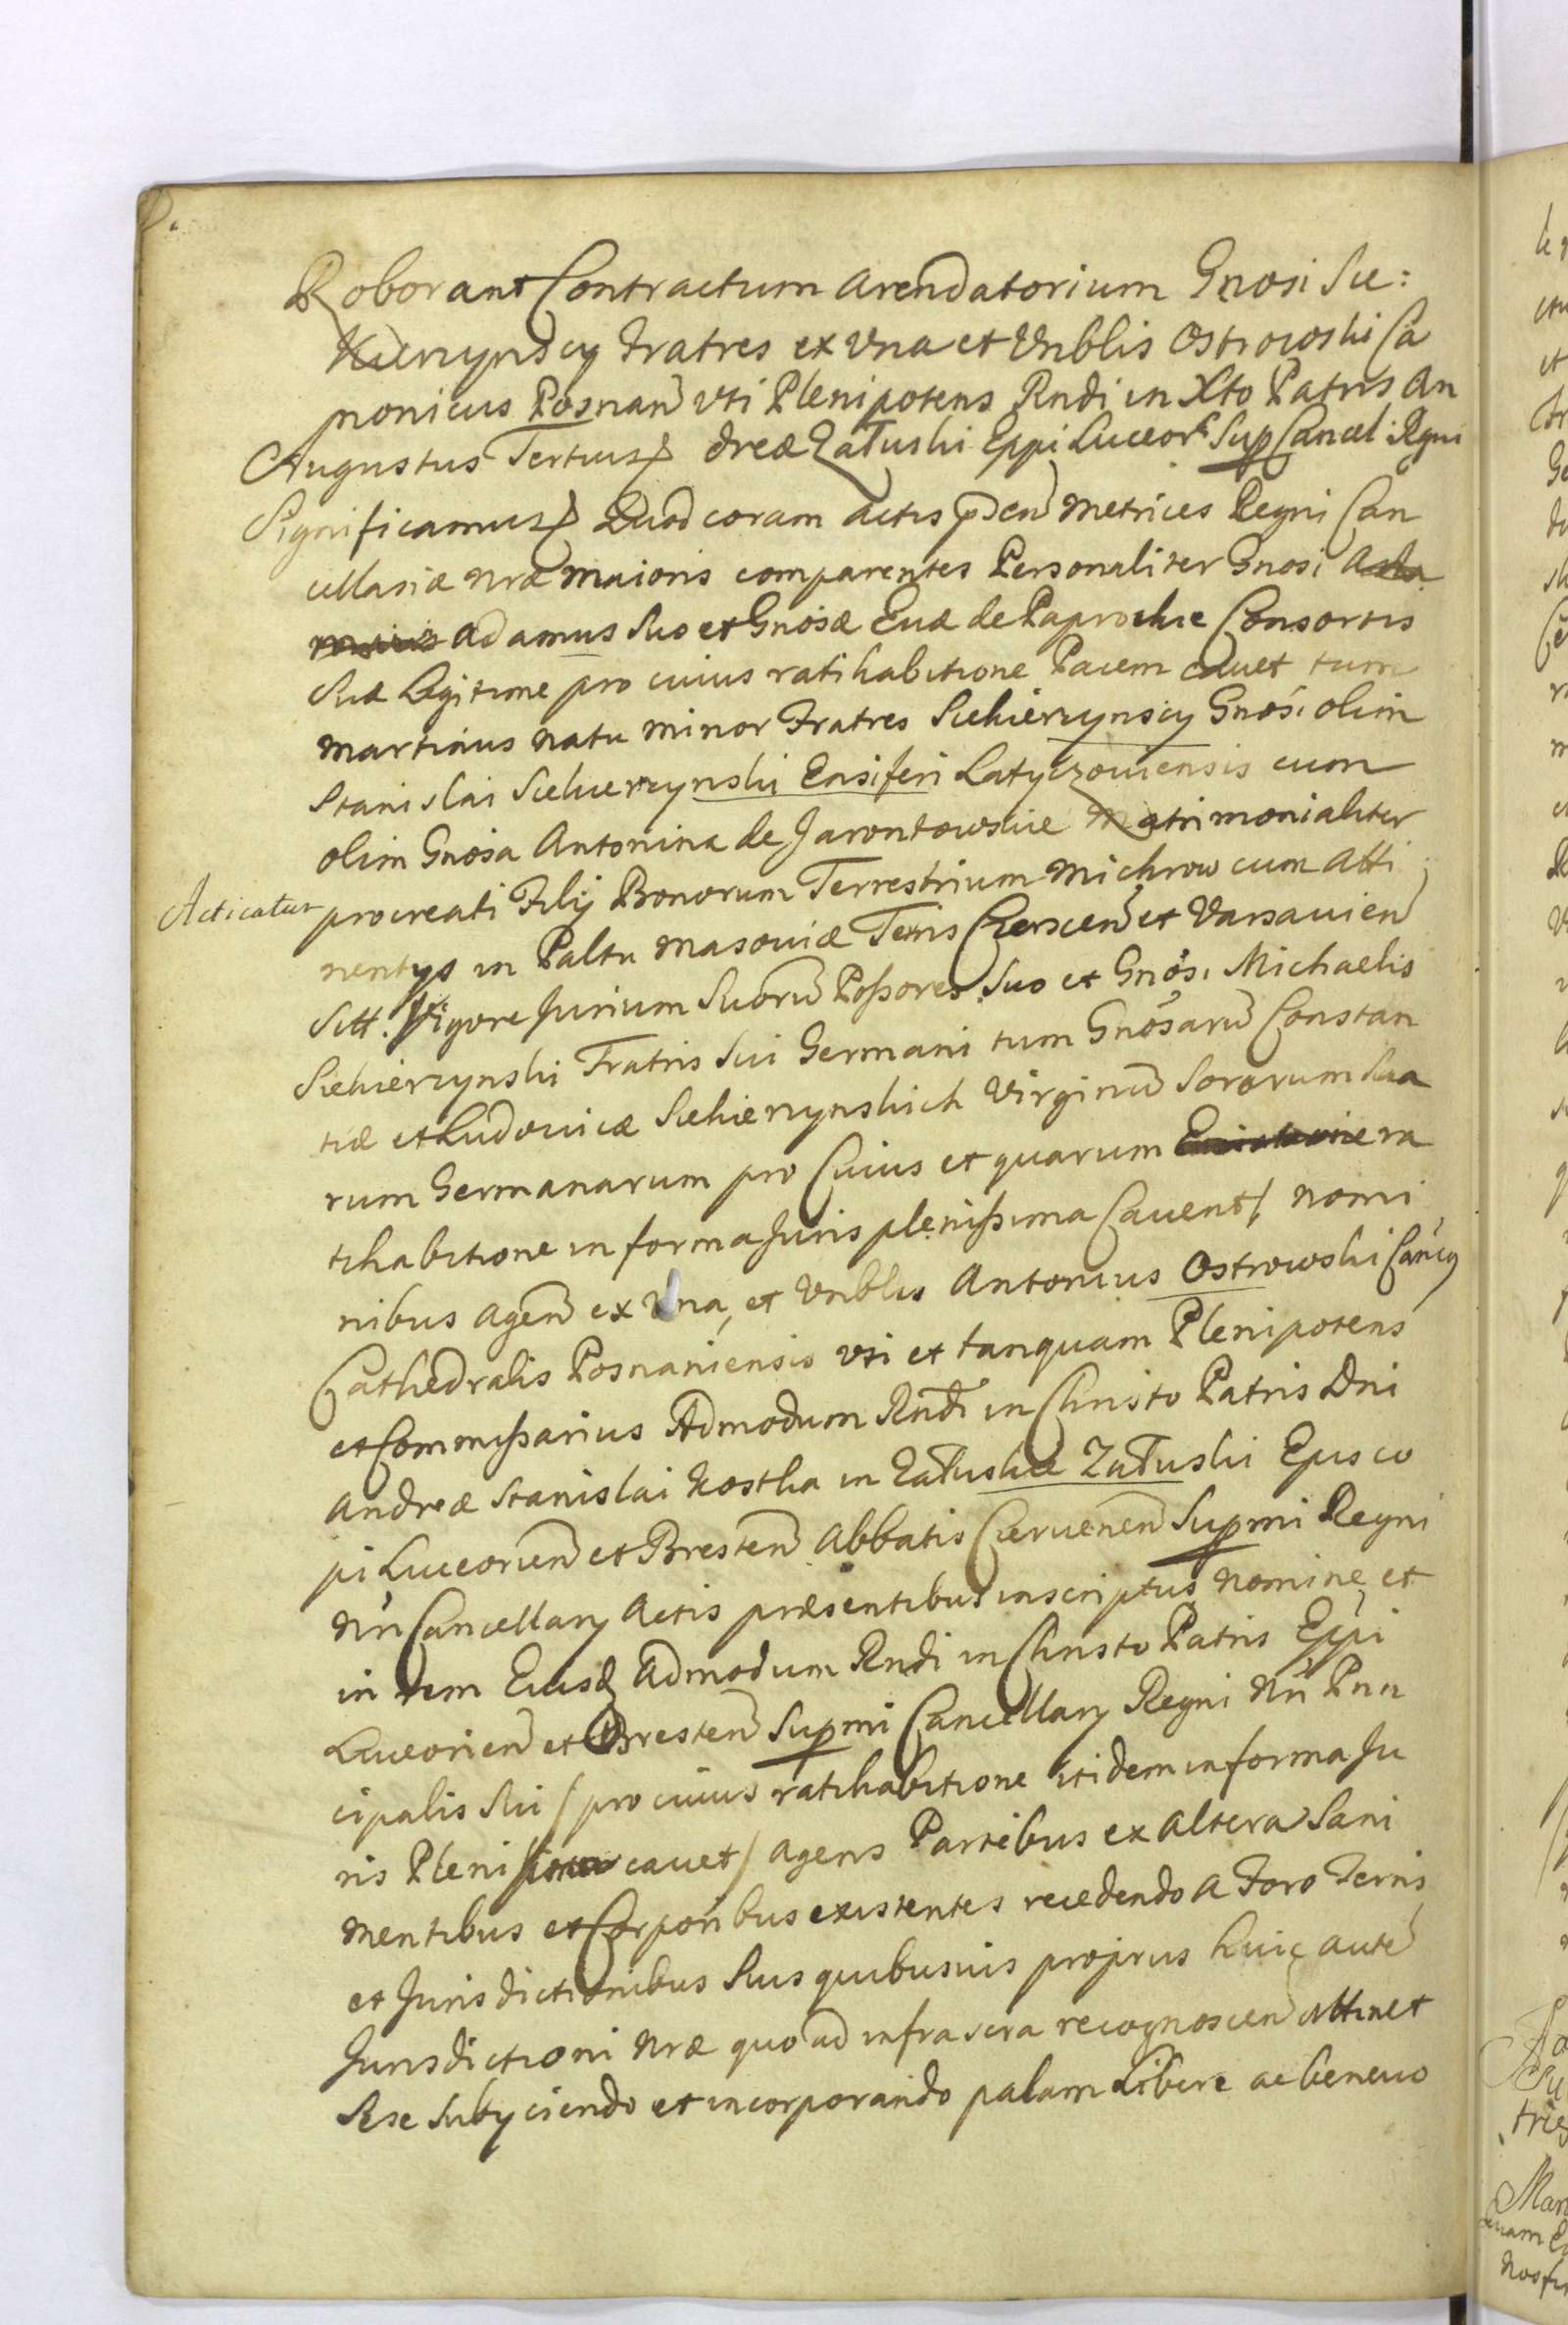 Roborant Contractum Arendatorium Gnosi Sie:
kierzynscy Fratres ex Vna et Vnblis Ostrowski Ca
nonicus Posnan vti Plenipotens Rndi in Xto Patris An
Augustus Tertius dreæ Załuski Eppi Luceor Sup Cancel: Rgni
Significamus Quod coram Actis pden Metrices Regni Can
cellariæ nræ Maioris comparentes Personaliter Gnosi
Adamus Suo et Gnosæ Euæ de Paprockie Consortis
Suæ Legitime pro cuius ratihabitione Pacem cauet tum
Martinus natu minor Fratres Siekierzynscy Gnosi olim
Stanislai Siekierzynski Ensiferi Latyczouiensis cum
olim Gnosa Antonina de Jarontowskie Matrimonialiter
Acticatur procreati Filij Bonorum Terrestrium Michrow cum Atti
nentys in Paltu Masouiæ Terris Czerscen et Varsauien
Sitt. Vigore Jurium Suoru Possores Suo et Gnosi Michaelis
Siekierzynski Fratris Sui Germani tum Gnosaru Constan
tiæ et Ludouicæ Siekierzynskich Virginu Sororum Sua
rum Germanarum pro Cuius et quarum ra
tihabitione in forma Juris plenissima Cauent/ nomi
nibus agen ex Vna, et Vnblis Antonius Ostrowski Cancus
Cathedralis Posnaniensis vti et tanquam Plenipotens
et Commissarius Admodum Rndi in Christo Patris Dni
Andreæ Stanislai Kostka in Załuskie Załuski Episco
pi Luceorien et Bresten Abbatis Czeruenen Supmi Regni
Nri Cancellary Actis præsentibus inscriptus nomine et
in rem Eiusd Admodum Rndi in Christo Patris Eppi
Luceorien et Bresten Supmi Cancellary Regni Nri Prin
cipalis Sui / pro cuius ratihabitione itidem in forma Ju
ris Plenissima cauet / agens Partibus ex altera Sani
Mentibus et Corporibus existentes recedendo a Foro Terris
et Jurisdictionibus Suis quibusuis proprus huic aute
Jurisdictioni nræ quo ad infrascra recognoscen attinet
Sese Subyciendo et incorporando palam Libere ac beneuo